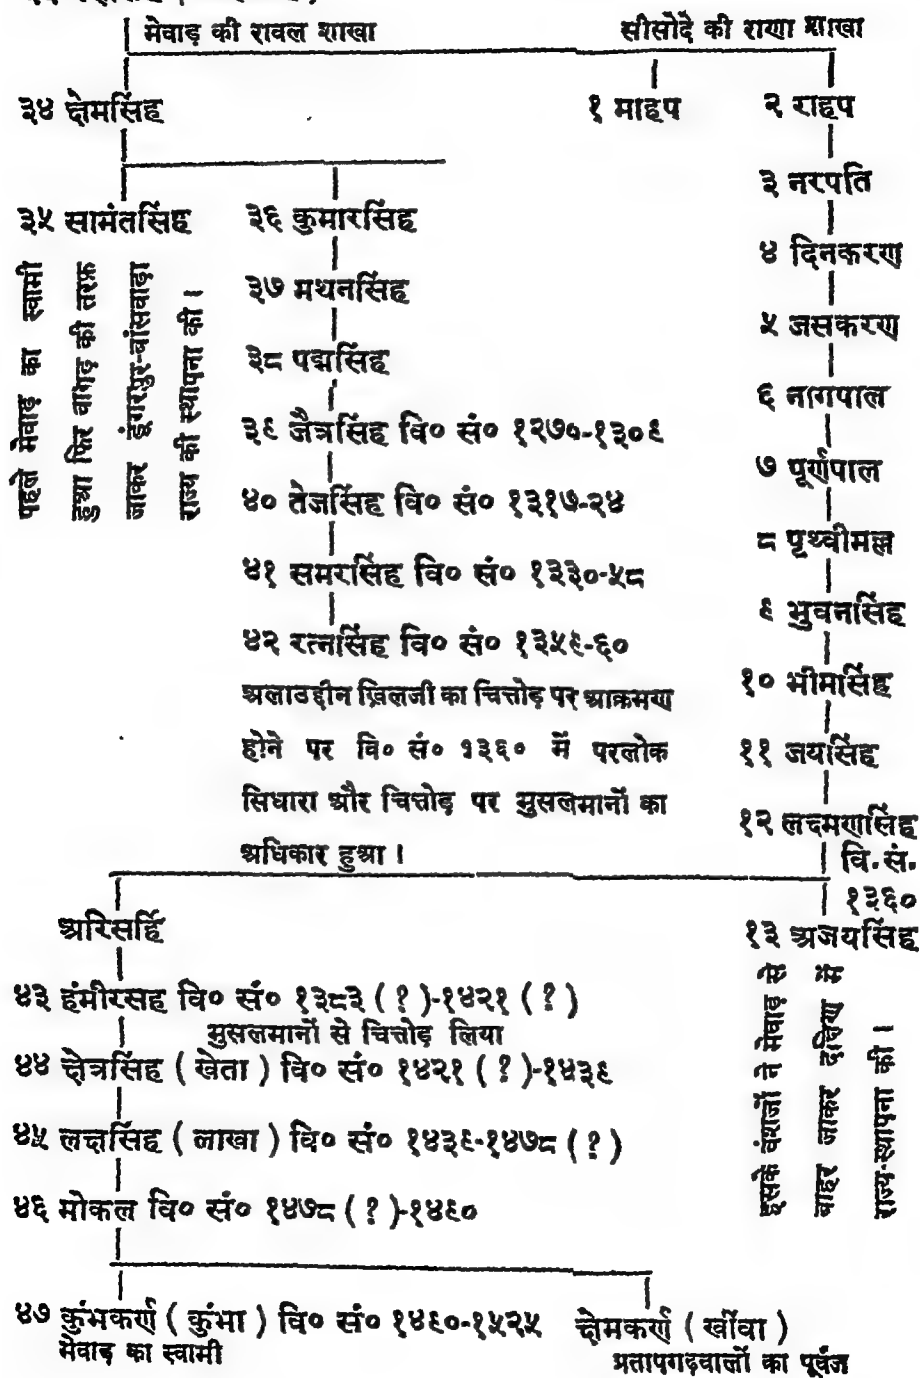 मेवाड़ की रावल शाखा
सीसोदे की राणा शाखा
३४ क्षेमसिंह
१ माहप
२ राहप
३ नरपति
३५ सामंतसिंह
पहले मेवाड़ का स्वामी
हुआ फिर वागड़ की तरफ़
जाकर डूंगरपुर-बांसवाड़ा
राज्य की स्थापना की ।
३६ कुमारसिंह
४ दिनकरण
३७ मथनसिंह
५ जसकरण
३८ पद्मसिंह
६ नागपाल
३९ जैत्रसिंह वि० सं० १२७०-१३०९
७ पूर्णपाल
४० तेजसिंह वि० सं० १३१७-२४
८ पृथ्वीमल्ल
४१ समरसिंह वि० सं० १३३०-५८
९ भुवनसिंह
४२ रत्नसिंह वि० सं० १३५९-६०
अलाउद्दीन ख़िलजी का चित्तोड़ पर आक्रमण
होने पर वि० सं० १३६० में परलोक
सिधारा और चित्तोड़ पर मुसलमानों का
अधिकार हुआ ।
१० भीमसिंह
११ जयसिंह
१२ लक्ष्मणसिंह
वि. सं.
१३६०
अरिसर्हि
१३ अजयसिंह
इसके वंशजों ने मेवाड़ से
बाहर जाकर दक्षिण में
राज्य-स्थापना की ।
४३ हंमीरसह वि० सं० १३८३ ( ? )-१४२१ ( ? )
मुसलमानों से चित्तोड़ लिया
४४ क्षेत्रसिंह ( खेता ) वि० सं० १४२१ ( ? )-१४३९
४५ लक्षसिंह ( लाखा ) वि० सं० १४३९-१४७८ ( ? )
४६ मोकल वि० सं० १४७८ ( ? )-१४९०
४७ कुंभकर्ण ( कुंभा ) वि० सं० १४९०-१५२५
मेवाड़ का स्वामी
क्षेमकर्ण ( खींवा )
प्रतापगढ़वालों का पूर्वज